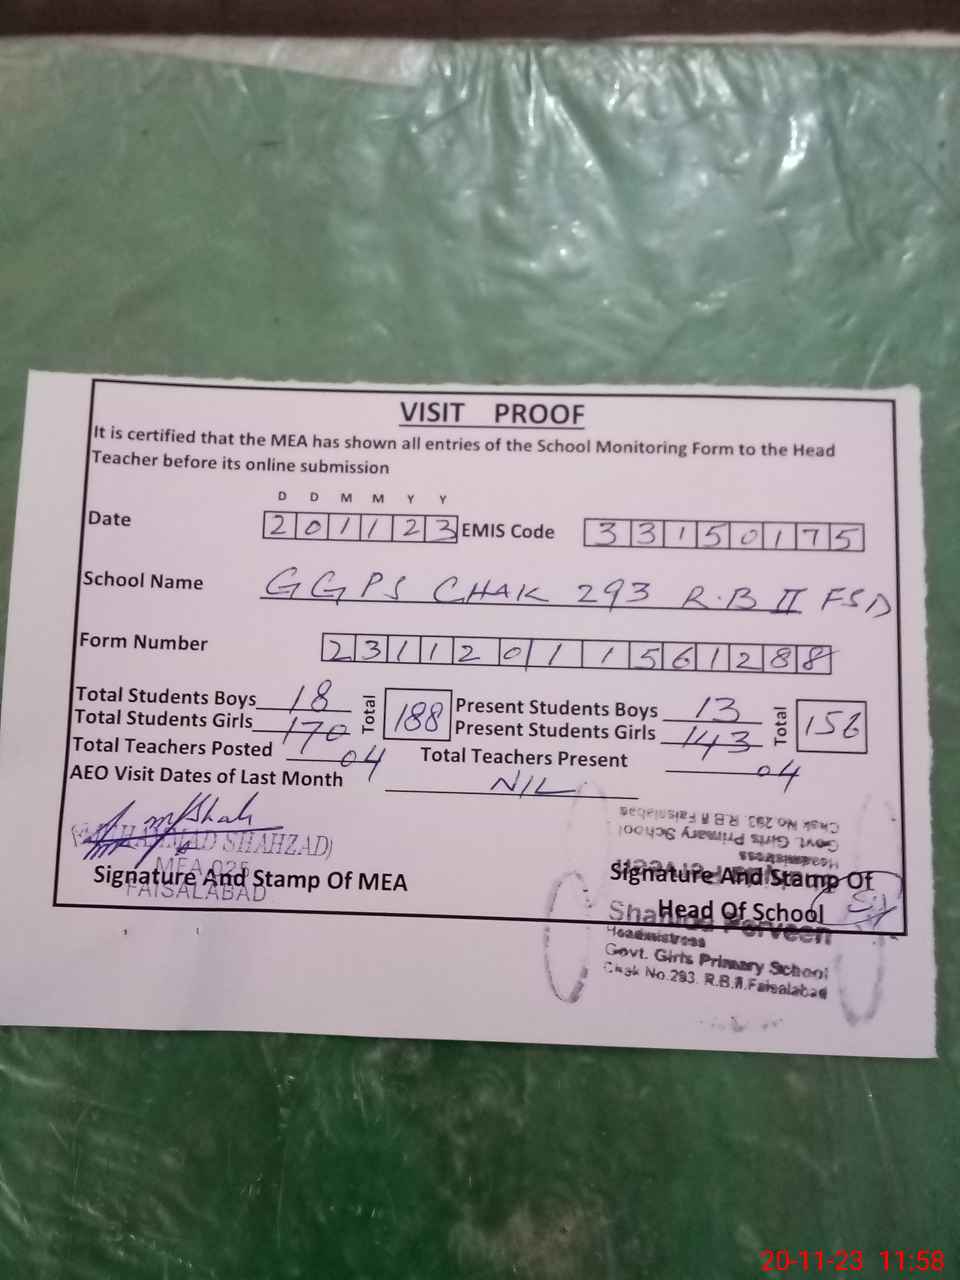 VISIT PROOF
It is certified that the MEA has shown all entries of the School Monitoring Form to the Head
Teacher before its online submission
D D M M Y Y
Date 201123 EMIS Code 33150175
School Name GGPS CHAK 293 R.B II FSD
Form Number 23112011561288
Total Students Boys 18 Total 188 Present Students Boys 13 Total 156
Total Students Girls 170 Present Students Girls 143
Total Teachers Posted 04 Total Teachers Present 04
AEO Visit Dates of Last Month NIL
Chak No.293 R.B.II Faisalabad
Govt. Girls Primary School
Headmistress
(MUHAMMAD SHAHZAD)
MEA 025
FAISALABAD
Signature And Stamp Of MEA
Signature And Stamp Of
Head Of School
Parveen
Headmistress
Govt. Girls Primary School
Chak No.293. R.B.II.Faisalabad
20-11-23 11:58